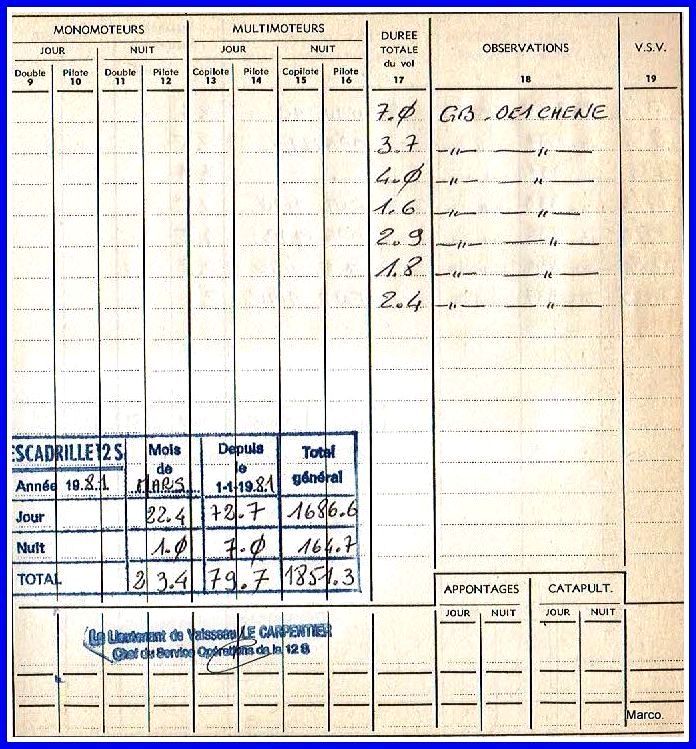 MONOMOTEURS MULTIMOTEURS DUREE TOTALE du vol 17 OBSERVATIONS 18 V.S.V. 19
JOUR NUIT JOUR NUIT
Double 9 Pilote 10 Double 11 Pilote 12 Copilote 13 Pilote 14 Copilote 15 Pilote 16
7.0 GB
3.7 -"- -"-
4.0 -"- -"-
1.6 -"- -"-
2.9 -"- -"-
1.8 -"- -"-
2.4 -"- -"-
ESCADRILLE 12 S Mois de Depuis le Total général
Année 19.81 MARS 1-1-1981
Jour 22.4 72.7 1686.6
Nuit 1.0 7.0 164.7
TOTAL 23.4 79.7 1851.3
APPONTAGES CATAPULT.
JOUR NUIT JOUR NUIT
Le Lieutenant de Vaisseau LE CARPENTIER
Chef du Service Opérations de la 12 S
Marco.